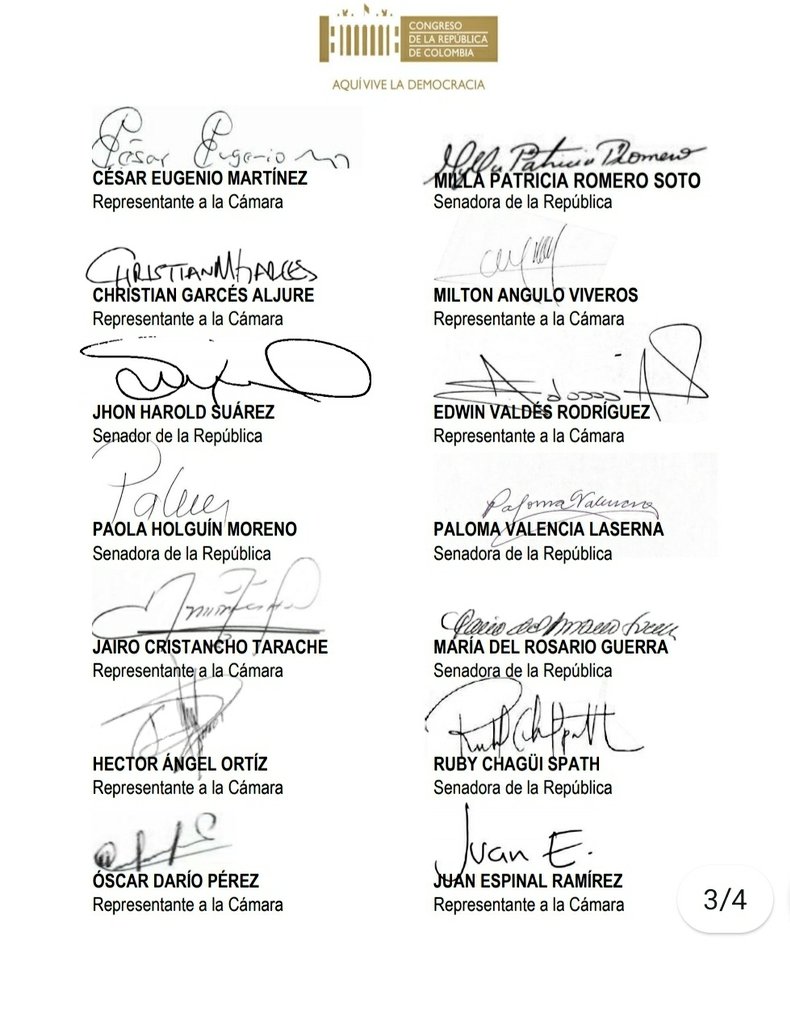 CONGRESO
DE LA REPÚBLICA
DE COLOMBIA
AQUÍ VIVE LA DEMOCRACIA
César Eugenio
CÉSAR EUGENIO MARTÍNEZ
Representante a la Cámara
Mylla Patricia Romero
MILLA PATRICIA ROMERO SOTO
Senadora de la República
CHRISTIAN M GARCES
CHRISTIAN GARCÉS ALJURE
Representante a la Cámara
MILTON ANGULO VIVEROS
Representante a la Cámara
JHON HAROLD SUÁREZ
Senador de la República
EDWIN VALDÉS RODRÍGUEZ
Representante a la Cámara
PAOLA HOLGUÍN MORENO
Senadora de la República
Paloma Valencia
PALOMA VALENCIA LASERNA
Senadora de la República
JAIRO CRISTANCHO TARACHE
Representante a la Cámara
María del Rosario Guerra
MARÍA DEL ROSARIO GUERRA
Senadora de la República
HECTOR ÁNGEL ORTÍZ
Representante a la Cámara
RUBY CHAGÜI SPATH
Senadora de la República
ÓSCAR DARÍO PÉREZ
Representante a la Cámara
Juan E.
JUAN ESPINAL RAMÍREZ
Representante a la Cámara
3/4